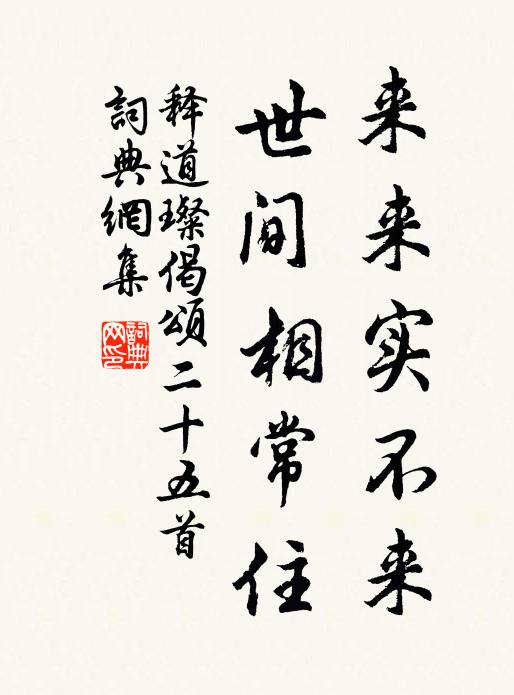 来来实不来
世间相常住
释道璨偈頌二十五首
詞典網集
詞典网印